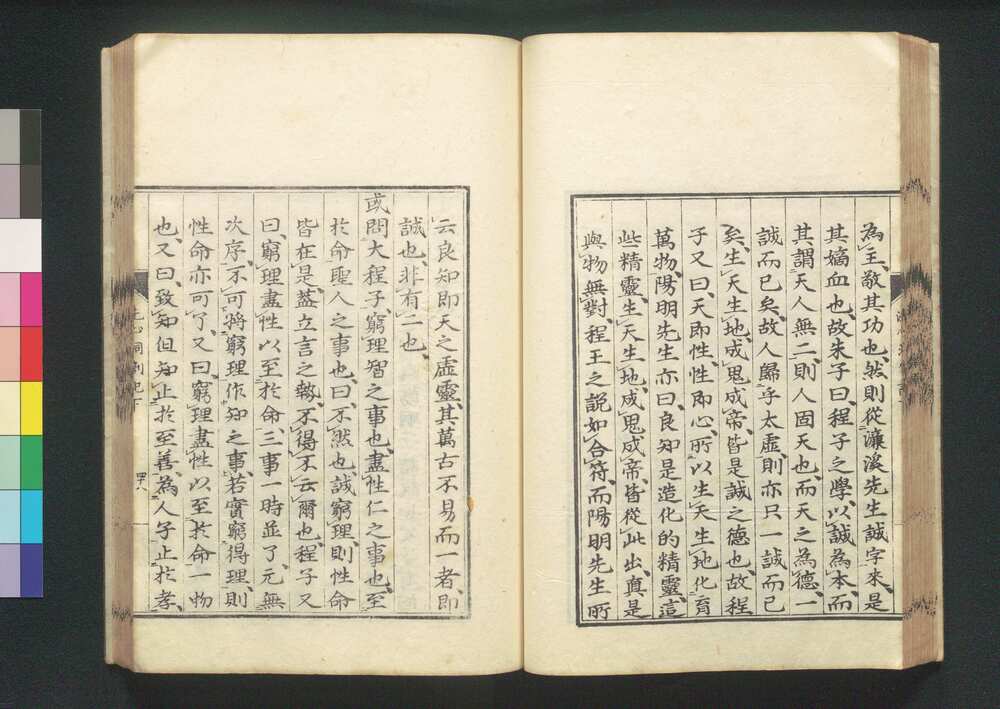 為主、敬其功也、然則從濂溪先生誠字來、是
其嫡血也、故朱子曰、程子之學、以誠為本、而
其謂天人無二、則人固天也、而天之為德、一
誠而已矣、故人歸乎太虛、則亦只一誠而已
矣、生天生地、成鬼成帝、皆是誠之德也、故程
子又曰、天即性、性即心、所以生天生地化育
萬物、陽明先生亦曰、良知是造化的精靈、這
些精靈、生天生地、成鬼成帝、皆從此出、真是
與物無對、程王之說如合符、而陽明先生所
云良知即天之虛靈、其萬古不易而一者、即
誠也、非有二也、
或問大程子、窮理智之事也、盡性仁之事也、至
於命聖人之事也、曰、不然也、誠窮理、則性命
皆在是、蓋立言之勢、不得不云爾也、程子又
曰、窮理盡性以至於命三事一時並了、元無
次序、不可將窮理作知之事、若實窮得理、則
性命亦可了、又曰、窮理盡性以至於命一物
也、又曰、致知但知止於至善、為人子止於孝、
洞劄記下
四十八